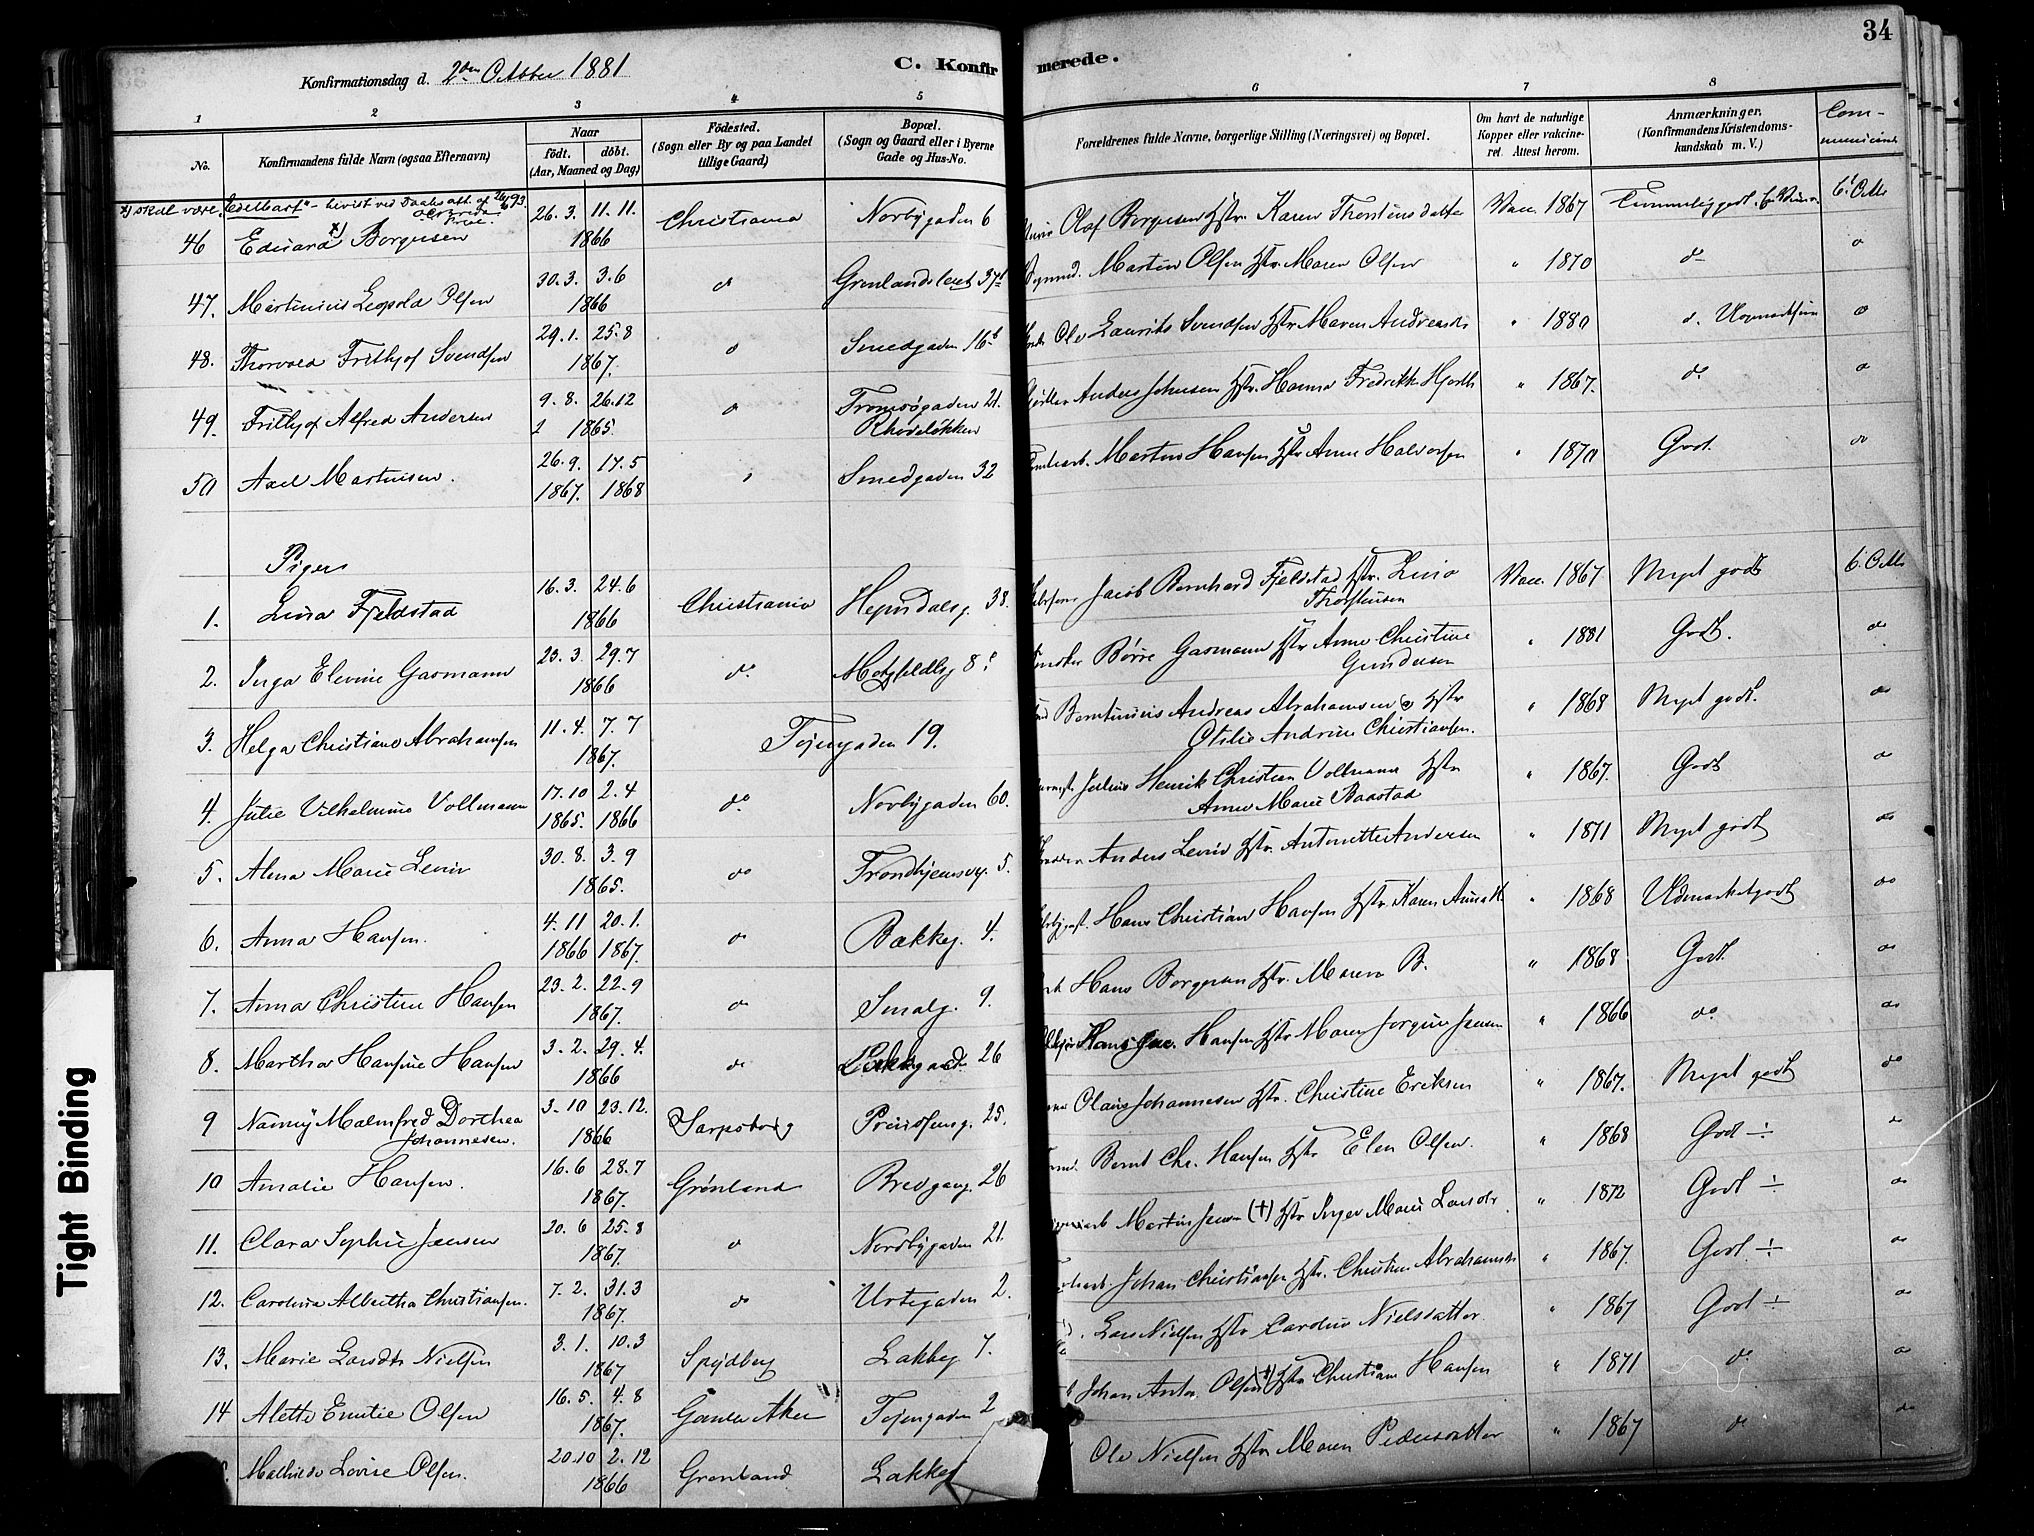 34
Konfirmationsdag d. 2den October 1881
C. Konfirmerede.
1 2 3 4 5 6 7 8
No.
Konfirmandens fulde Navn (ogsaa Efternavn)
Naar
født. døbt.
(Aar, Maaned og Dag)
Fødested.
(Sogn eller By og paa Landet
tillige Gaard)
Bopæl.
(Sogn og Gaard eller i Byerne
Gade og Hus-No.
Forældrenes fulde Navne, borgerlige Stilling (Næringsvei) og Bopæl.
Om havt de naturlige
Kopper eller vakcine-
ret. Attest herom.
Anmærkninger.
(Konfirmandens Kristendoms-
kundskab m. V.)
x) skal være "Edelbart" - bevist ved Daabsatt. af
46 Eduard x) Borgersen 26.3. 11.11. 1866 Christiania Norbygaden 6 Olaf Borgersen Hstr. Karen Thorstensdatter Vacc. 1867 6' Octb
47. Martinius Leopold Olsen 30.3. 3.6 1866 do Grønlandsleret Martin Olsen Hstr. Maren Olsen " 1870 do do
48. Thorvald Frithjof Svendsen 29.1. 25.8 1867. do Smedgaden 16b Ole Laurits Svendsen Hstr Maren Andreasdr " 1880 do
49. Frithjof Alfred Andersen 9.8. 26.12 1865. do Tromsøgaden 21. Anders Johnsen Hstr. Hanna Fredrikke Hjorth " 1867. do do
Rhodeløkken
50 Axel Martinsen. 26.9. 17.5 1867. 1868 " Smedgaden 32 Martin Hansen Hstr Anne Halvorsen " 1870 Godt. do
Piger
1. Lina Fjeldstad 16.3. 24.6 1866 Christiania Heimdalsg. 38. Jacob Bernhard Fjeldstad Hstr. Lina Vacc. 1867 Meget godt 6' Octb
Thorstensen
2. Inga Elevine Gasmann 23.3. 29.7 1866 do Motzfeldtsg 8 Børre Gasmann Hstr Anne Christine " 1881 Godt. do
Gundersen
3. Helga Christiane Abrahamsen 11.4. 7.7 1867. Tøiengaden 19. Berntinius Andreas Abrahamsen Hstr " 1868 Meget godt. do
Otilie Andrine Christiansen.
4. Julie Vilhelmine Vollmann 17.10 2.4 1865. 1866 do Norbygaden 60. Julius Henrik Christian Vollmann Hstr " 1867. Godt do
Anne Marie Baastad
5. Alma Marie Levin 30.8. 3.9 1865. do Trondhjemsvej. 5. Anders Levin Hstr. Antonette Andersen " 1871 Meget godt do
6. Anna Hansen. 4.11 20.1. 1866 1867. do Bakkeg. 4. Hans Christian Hansen Hstr. Karen " 1868 Udmærket godt do
7. Anna Christine Hansen 23.2. 22.9 1867. do Smalg. 9. Hans Borgersen Hstr. Maren B. " 1868 Godt do
8. Martha Hansine Hansen 3.2. 29.4. 1866 do Lakkegaden 26 Hansen Hstr Maren Jørgine Jensen " 1866 do do
9 Nanny Malmfred Dorthea 3.10 23.12. 1866 Sarpsborg Prindseng. 25. Olaus Johannesen Hstr. Christine Eriksen " 1867. Meget godt do
Johannesen.
10 Amalie Hansen. 16.6 28.7 1867. Grønland Bredgang. 26 Bernt Chr. Hansen Hstr Elen Olsen. " 1868 Godt ÷ do
11. Clara Sophie Jensen 20.6 25.8 1867. do Nordbygaden 21. Martin Jensen (†) Hstr Inger Marie Larsdr. " 1872 Godt ÷ do
12. Caroline Albertha Christiansen. 7.2. 31.3 1867. do Urtegaden 2. Johan Christiansen Hstr. Christine Abrahamsdr " 1867. Godt ÷ do
13. Marie Larsdtr Nielsen 3.1. 10.3 1867 Spydberg Lakkeg 7. Lars Nielsen Hstr Caroline Nielsdatter. " 1867 Godt ÷ do
14 Alette Emilie Olsen 16.5. 4.8 1867. Gamle Aker Tøiengaden 2 Johan Anton Olsen (†) Hstr Christiane Hansen " 1871 do do
Mathilde Lovise Olsen. 20.10 2.12 1866 Grønland Lakkeg Ole Nielsen Hstr Maren Pedersdatter " 1867 do do
Tight Binding